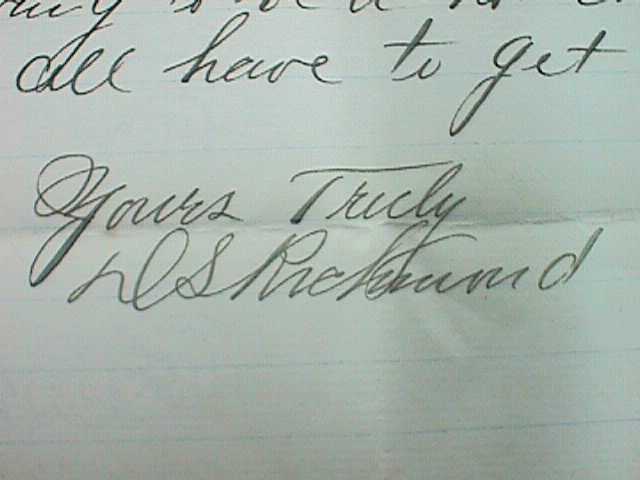 all have to get
Yours Truly
D S Richmond